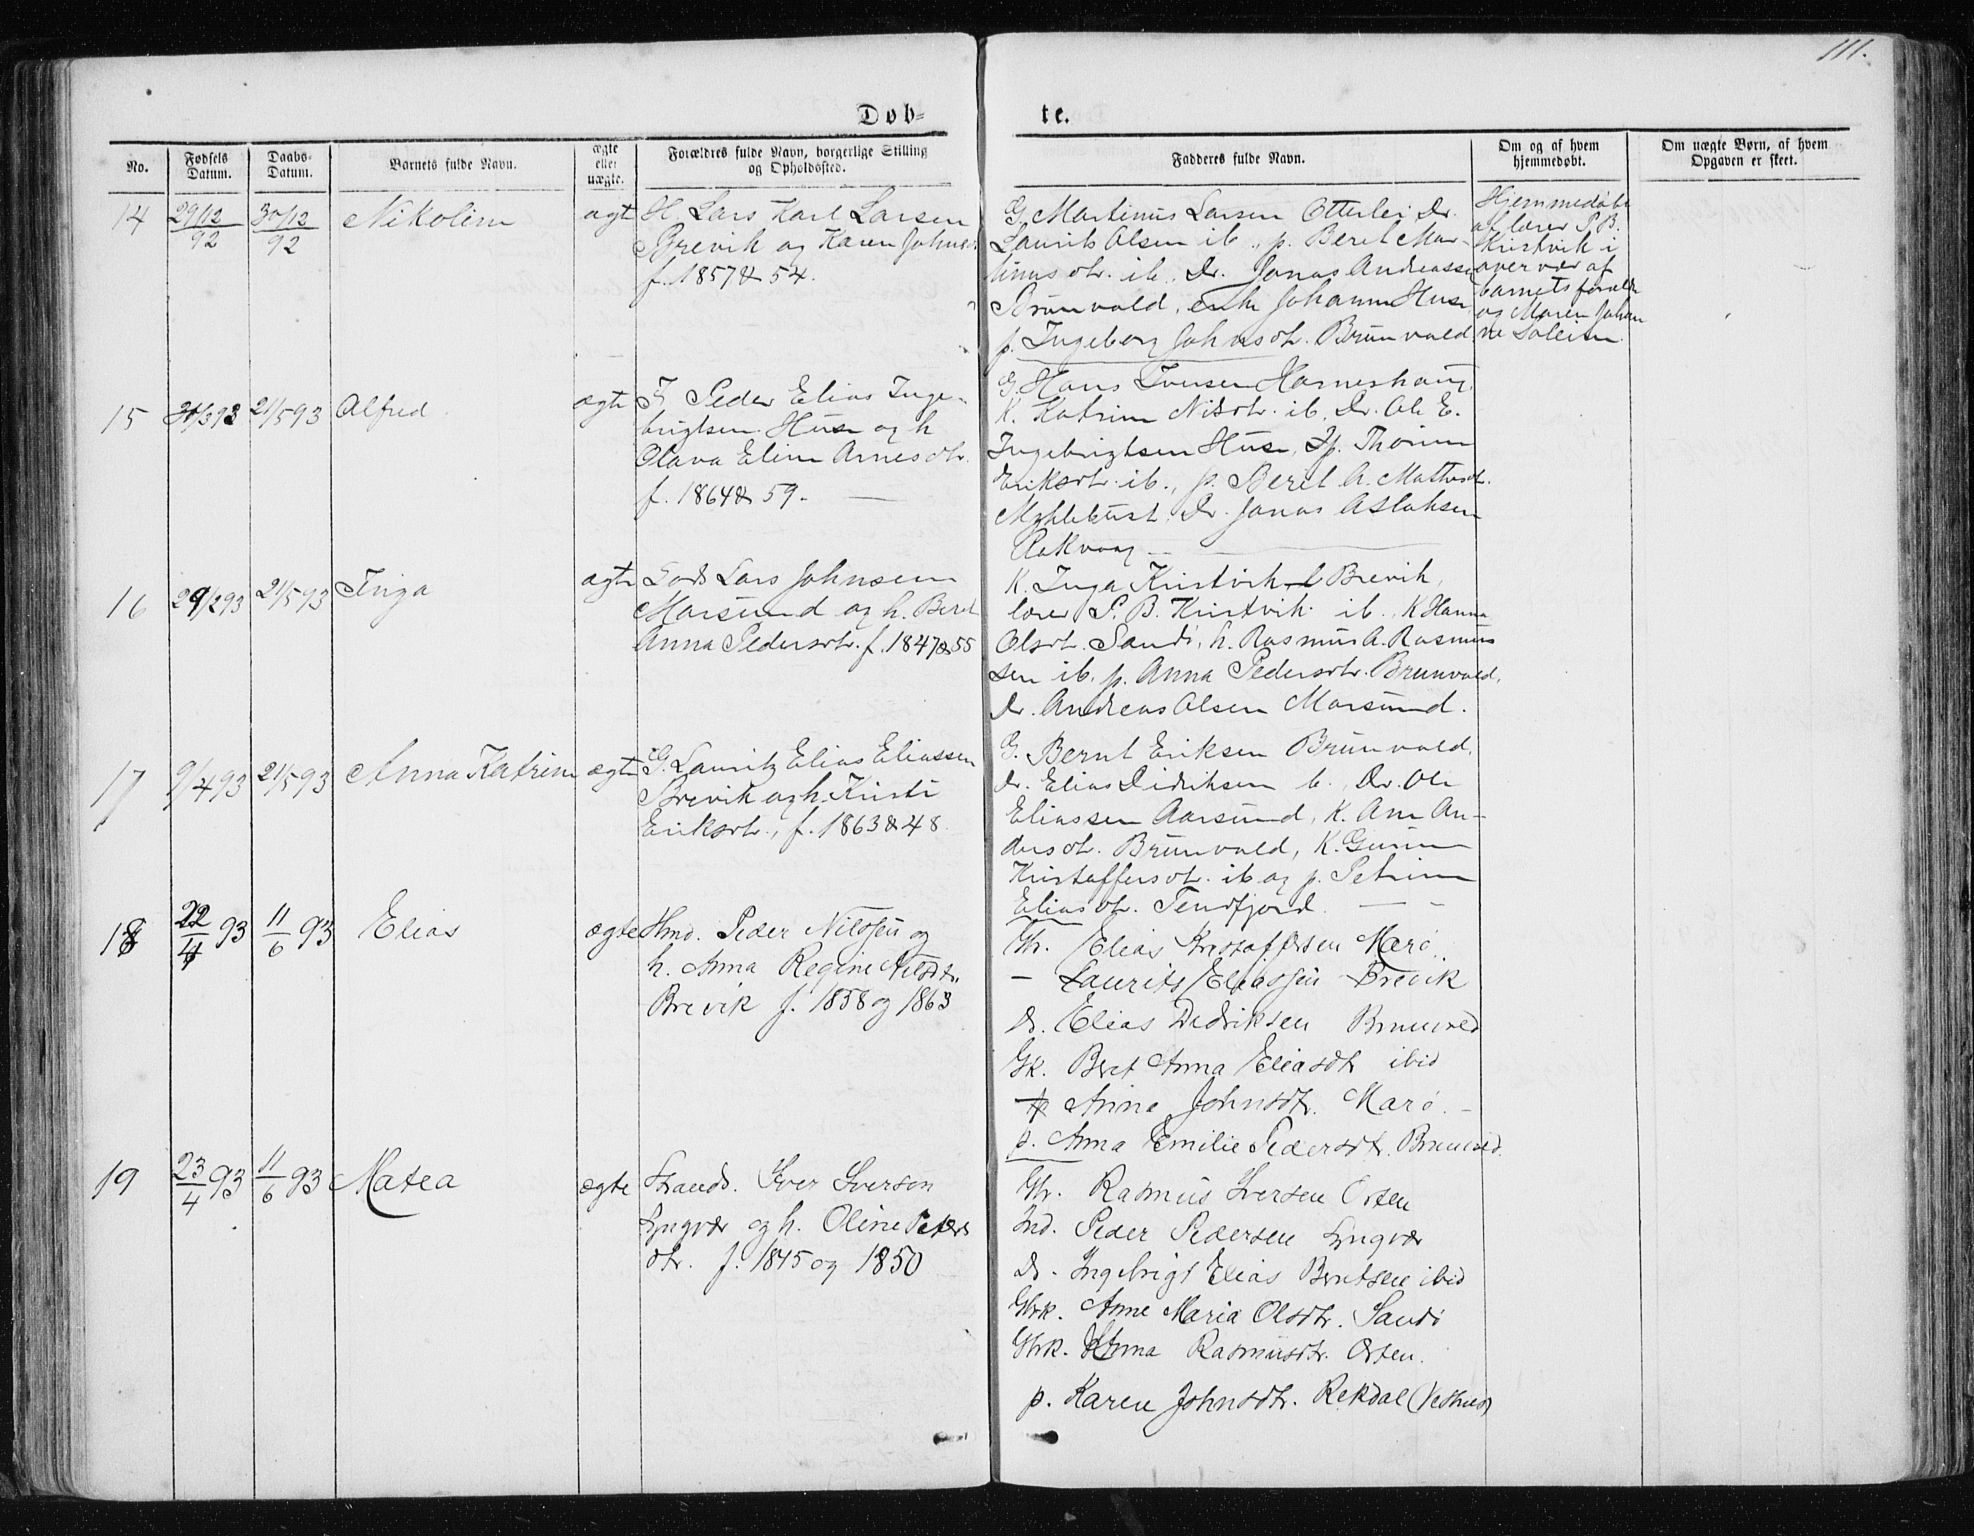 111.
Døb-
te.
No.
Fødsels Datum.
Daabs- Datum.
Barnets fulde Navn.
ægte eller uægte.
Forældres fulde Navn, borgerlige Stilling og Opholdssted.
Fadderes fulde Navn.
Om og af hvem hjemmedøbt.
Om uægte Børn, af hvem Opgaven er skeet.
14
29/12 92
30/12 92
Nikoline
ægt
H. Lars Karl Larsen
Brevik og Karen Johnsd
f. 1857 & 54.
G. Martinus Larsen Otterlei Dr.
Laurits Olsen ib., p. Beret Mar-
tinusdtr. ib. Dr. Jonas Andreassen
Brunvold, enke Johanne Huse
p. Ingeborg Johnsdtr. Brunvold
Hjemmedøbt
af lærer P. B.
Kristvik i
overvær af
barnets foreldr
og Maren Johan
ne Soleim
15
30/3 93
21/5 93
Alfred
ægte
I. Peder Elias Inge-
brigtsen Huse og h
Olava Eline Arnesdtr.
f. 1864 & 59. —
G. Hans Iversen Harneshaug,
K. Katrine Nilsdtr. ib, Dr. Ole E.
Ingebrigtsen Huse, Ip. Thorine
Eriksdtr. ib., p. Beret A. Mathisdtr.
Myklebust. Dr. Jonas Aslaksen
Rakvaag —
16
29/2 93
21/5 93
Inga
ægte
Lods Lars Johnsen
Morsund og h. Beret
Anna Pedersdtr. f. 1847 & 55
K. Inga Kristvik Brevik,
lærer P. B. Kristvik ib. K Hanna
Olsdtr. Sandø, h. Rasmus A. Rasmus
sen ib. p. Anna Pedersdtr. Brunvold,
Dr. Andreas Olsen Morsund.
17
9/4 93
21/5 93
Anna Katrine
ægte
G. Lauritz Elias Eliassen
Brevik og h. Kristi
Eriksdtr., f. 1863 & 48
G. Bernt Eriksen Brunvold,
Dr. Elias Didriksen ib. Dr. Ole
Eliassen Aarsund, K. Ane An-
dersdtr. Brunvold, K. Gurine
Kristoffersdtr. ib og p. Petrine
Eliasdtr. Tennfjord. — -
18
22/4 93
11/6 93
Elias
ægte
Hmd. Peder Nilssen og
h. Anna Regine Nilsdtr.
Brevik f. 1858 og 1863
Gbr. Elias Kristoffersen Marø
- Laurits Eliassen Brevik
D. Elias Didriksen Brunvold
Gk. Beret Anna Eliasdtr ibid
p Anne Johnsdtr. Marø. -
p. Anna Emilie Pedersdt. Brunvold
19
23/4 93
11/6 93
Matea
ægte
Strands. Iver Iversen
Lyngvær og h. Oline Peters
dtr. f. 1845 og 1850
Gbr. Rasmus Iversen Orten
Ind. Peder Pedersen Lyngvær
D. Ingebrigt Elias Berntsen ibid
Gbrk. Anne Maria Olsdtr. Sandø
Gbrk. Anna Rasmusdtr. Orten.
p. Karen Johnsdtr. Rekdal (Vestnes)